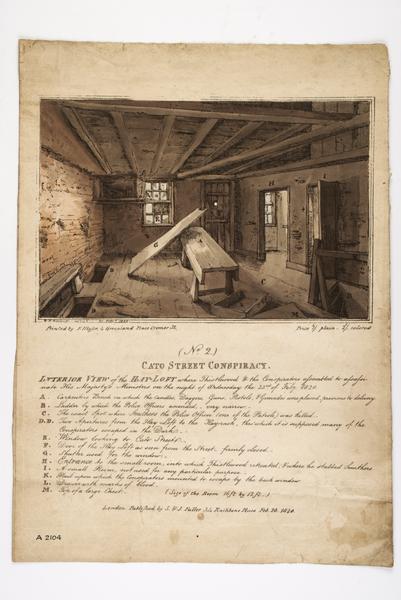 Printed by N Chater, 4 Upper land Place Cromer St.
Price 1/ plain - 2/ colored
(No 2.)
CATO STREET CONSPIRACY.
INTERIOR VIEW of the HAY-LOFT where Thistlewood & the Conspirators assembled to assassi-
nate His Majesty's Ministers on the night of Wednesday the 23rd of Feby. 1820.
A. Carpenters Bench on which the candles, Daggers, Guns, Pistols, & Grenades were placed, previous to delivery
B. Ladder by which the Police Officers ascended, very narrow.
C. The exact Spot where Smithers the Police Officer (one of the Patrole) was killed.
D.D. Two Apertures from the Hay Loft to the Hayrack, thro which it is supposed many of the
Conspirators escaped in the Dark.
E. Window looking to Cato Street.
F. Door of the Hay Loft as seen from the Street, firmly closed.
G. Shutter used for the window.
H. Entrance to the small room, into which Thistlewood retreated, & where he stabbed Smithers
I. A small Room, not used for any particular purpose.
K. Shed upon which the Conspirators mounted to escape by the back window
L. Straw with marks of blood.
M. Top of a large Chest.
(Size of the Room 16ft by 12ft.)
London Published by S. & J. Fuller 34 Rathbone Place Feb. 28. 1820.
A 2104